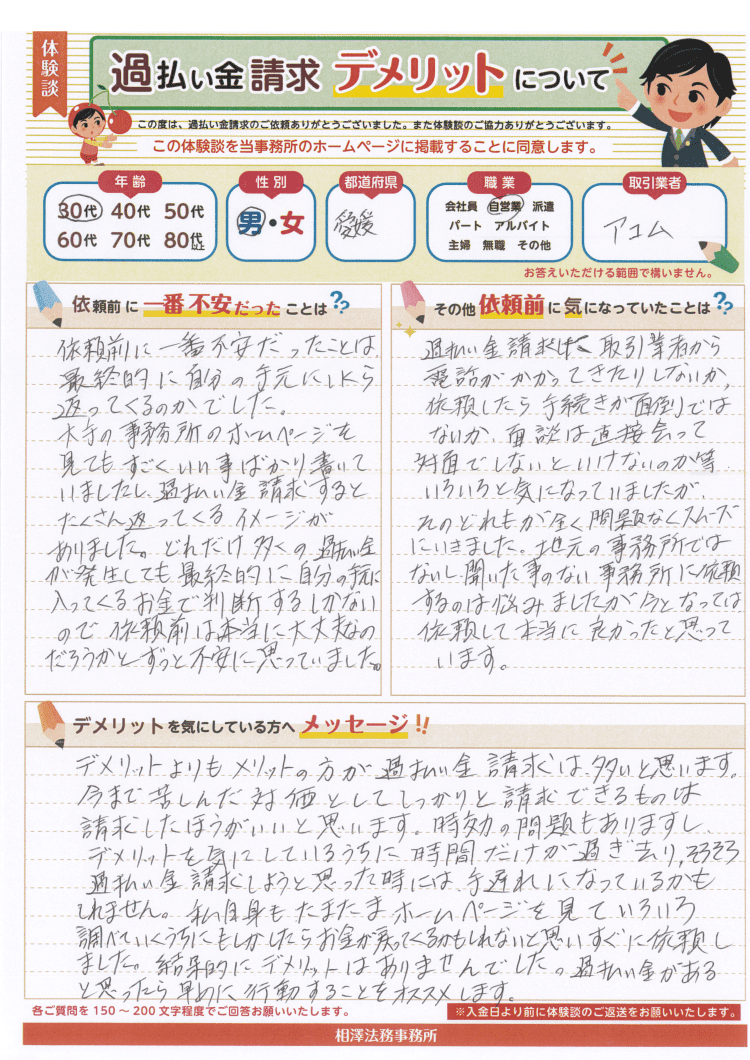 体験談
過払い金請求 デメリットについて
この度は、過払い金請求のご依頼ありがとうございました。また体験談のご協力ありがとうございます。
この体験談を当事務所のホームページに掲載することに同意します。
年齢
30代 40代 50代
60代 70代 80代以上
性別
男・女
都道府県
愛媛
職業
会社員 自営業 派遣
パート アルバイト
主婦 無職 その他
取引業者
アコム
お答えいただける範囲で構いません。
依頼前に一番不安だったことは??
依頼前に一番不安だったことは、
最終的に自分の手元にいくら
返ってくるのかでした。
大手の事務所のホームページを
見てもすごくいい事ばかり書いて
いましたし、過払い金請求すると
たくさん返ってくるイメージが
ありました。どれだけ多くの過払い金
が発生しても最終的に自分の手元に
入ってくるお金で判断するしかない
ので依頼前は本当に大丈夫なの
だろうかとずっと不安に思っていました。
その他依頼前に気になっていたことは??
過払い金請求は 取引業者から
電話がかかってきたりしないか、
依頼したら手続きが面倒では
ないか、面談は直接会って
対面でしないといけないのか等
いろいろと気になっていましたが、
そのどれもが全く問題なくスムーズ
にいきました。地元の事務所では
ないし聞いた事のない事務所に依頼
するのは悩みましたが今となっては
依頼して本当に良かったと思って
います。
デメリットを気にしている方へ メッセージ!!
デメリットよりもメリットの方が過払い金請求は、多いと思います。
今まで苦しんだ対価としてしっかりと請求できるものは
請求したほうがいいと思います。時効の問題もありますし、
デメリットを気にしているうちに時間だけが過ぎ去り、そろそろ
過払い金請求しようと思った時には、手遅れになっているかも
しれません。私自身もたまたまホームページを見ていろいろ
調べていくうちにもしかしたらお金が戻ってくるかもしれないと思いすぐに依頼し
ました。結果的にデメリットはありませんでした。過払い金がある
と思ったら早めに行動することをオススメします。
各ご質問を150～200文字程度でご回答お願いいたします。
※入金日より前に体験談のご返送をお願いいたします。
相澤法務事務所